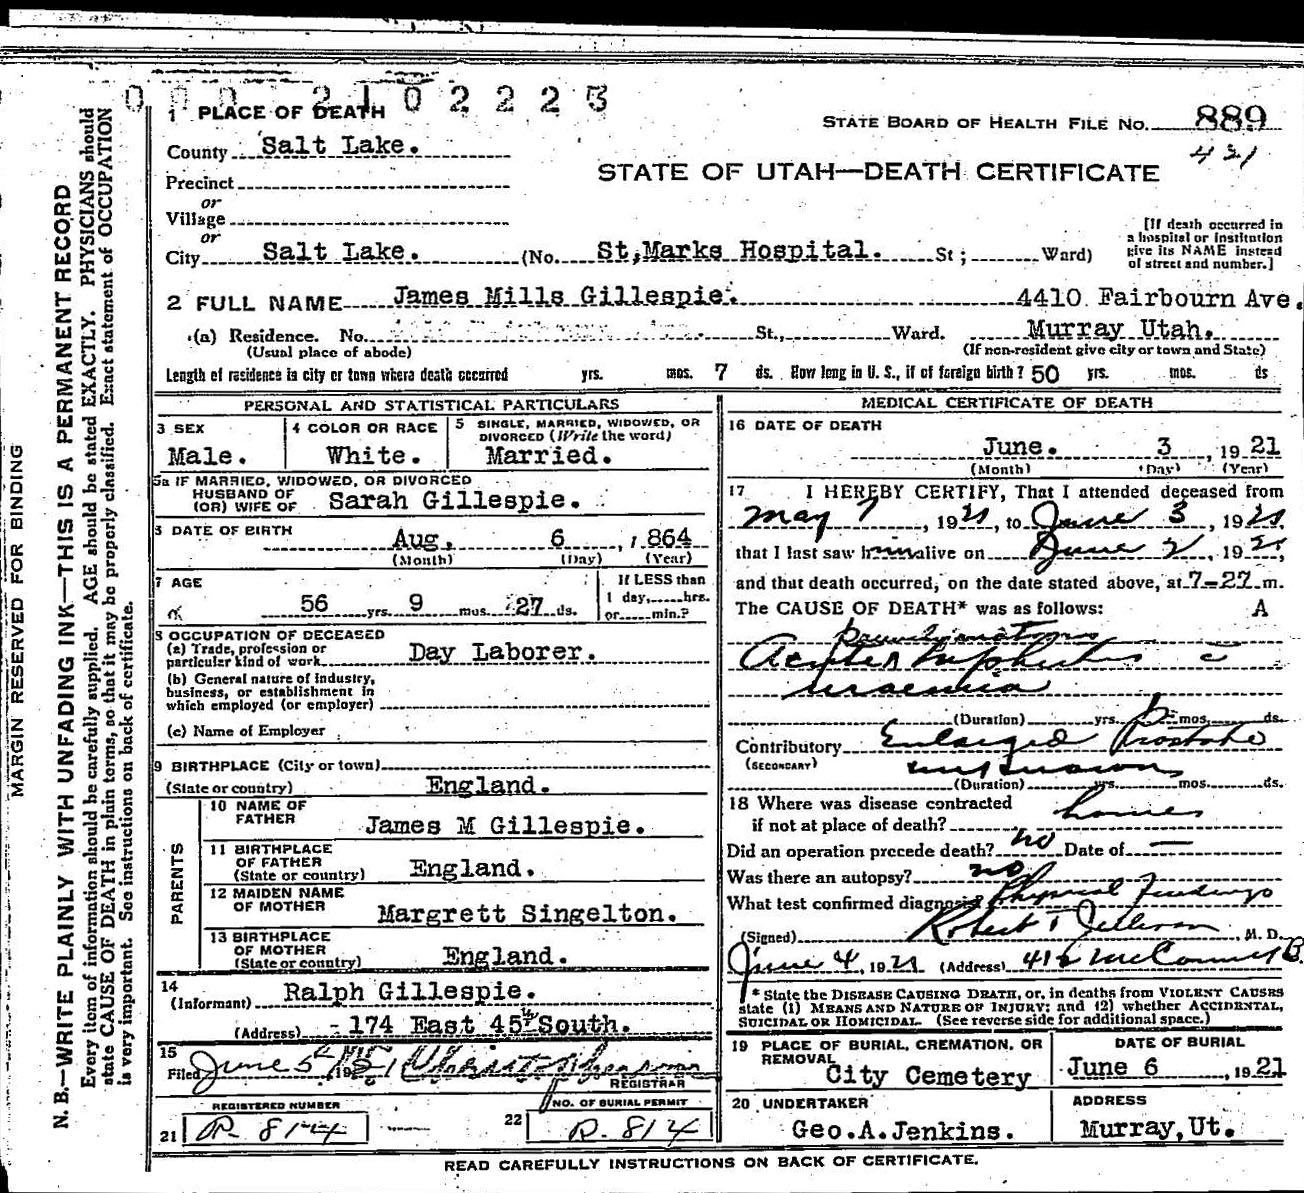 0002102223
1 PLACE OF DEATH
STATE BOARD OF HEALTH FILE NO. 889
421
County Salt Lake.
STATE OF UTAH—DEATH CERTIFICATE
Precinct
or
Village
or
City Salt Lake. (No. St,Marks Hospital. St ; Ward)
[If death occurred in a hospital or institution give its NAME instead of street and number.]
2 FULL NAME James Mills Gillespie. 4410 Fairbourn Ave.
(a) Residence. No. St., Ward. Murray Utah.
(Usual place of abode) (If non-resident give city or town and State)
Length of residence in city or town where death occurred yrs. mos. 7 ds. How long in U. S., if of foreign birth? 50 yrs. mos. ds
PERSONAL AND STATISTICAL PARTICULARS
3 SEX
Male.
4 COLOR OR RACE
White.
5 SINGLE, MARRIED, WIDOWED, OR DIVORCED (Write the word)
Married.
5a IF MARRIED, WIDOWED, OR DIVORCED
HUSBAND OF
(OR) WIFE OF Sarah Gillespie.
DATE OF BIRTH
Aug. 6 , 1864
(Month) (Day) (Year)
7 AGE
56 yrs. 9 mos. 27 ds.
If LESS than
1 day, hrs.
or min.?
8 OCCUPATION OF DECEASED
(a) Trade, profession or
particular kind of work Day Laborer.
(b) General nature of industry,
business, or establishment in
which employed (or employer)
(c) Name of Employer
9 BIRTHPLACE (City or town)
(State or country) England.
PARENTS
10 NAME OF
FATHER James M Gillespie.
11 BIRTHPLACE
OF FATHER
(State or country) England.
12 MAIDEN NAME
OF MOTHER Margrett Singelton.
13 BIRTHPLACE
OF MOTHER
(State or country) England.
14
(Informant) Ralph Gillespie.
(Address) 174 East 45th South.
15
Filed June 5th
REGISTRAR
REGISTERED NUMBER
21 R. 814
NO. OF BURIAL PERMIT
22 R. 814
MEDICAL CERTIFICATE OF DEATH
16 DATE OF DEATH
June. 3 , 19 21
(Month) (Day) (Year)
17 I HEREBY CERTIFY, That I attended deceased from
May 7 , 1921, to June 3 , 1921,
that I last saw him alive on June 2 , 1921,
and that death occurred, on the date stated above, at 7-27 m.
The CAUSE OF DEATH* was as follows: A
Acute Nephritis c
uraemia
(Duration) yrs. mos. ds.
Contributory Enlarged Prostate
(SECONDARY)
(Duration) yrs. mos. ds.
18 Where was disease contracted
if not at place of death? home
Did an operation precede death? no Date of —
Was there an autopsy? no
What test confirmed diagnosis Physical Findings
(Signed) Robert T Jellison M. D.
June 4, 1921 (Address) 416 McCornick B.
* State the DISEASE CAUSING DEATH, or, in deaths from VIOLENT CAUSES
state (1) MEANS AND NATURE OF INJURY; and (2) whether ACCIDENTAL,
SUICIDAL OR HOMICIDAL. (See reverse side for additional space.)
19 PLACE OF BURIAL, CREMATION, OR
REMOVAL
City Cemetery
DATE OF BURIAL
June 6 , 1921
20 UNDERTAKER
Geo.A.Jenkins.
ADDRESS
Murray,Ut.
READ CAREFULLY INSTRUCTIONS ON BACK OF CERTIFICATE.
MARGIN RESERVED FOR BINDING
N. B.—WRITE PLAINLY WITH UNFADING INK—THIS IS A PERMANENT RECORD
Every item of information should be carefully supplied. AGE should be stated EXACTLY. PHYSICIANS should
state CAUSE OF DEATH in plain terms, so that it may be properly classified. Exact statement of OCCUPATION
is very important. See instructions on back of certificate.